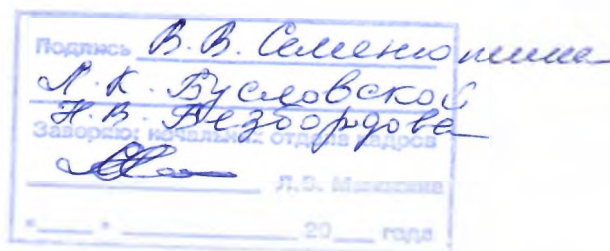 Подпись В. В. Семенютина
Л. К. Бусловской
Н. В. Безбородова
Заверяю: начальник отдела кадров
Л.В.
"___" ___ 20___ года